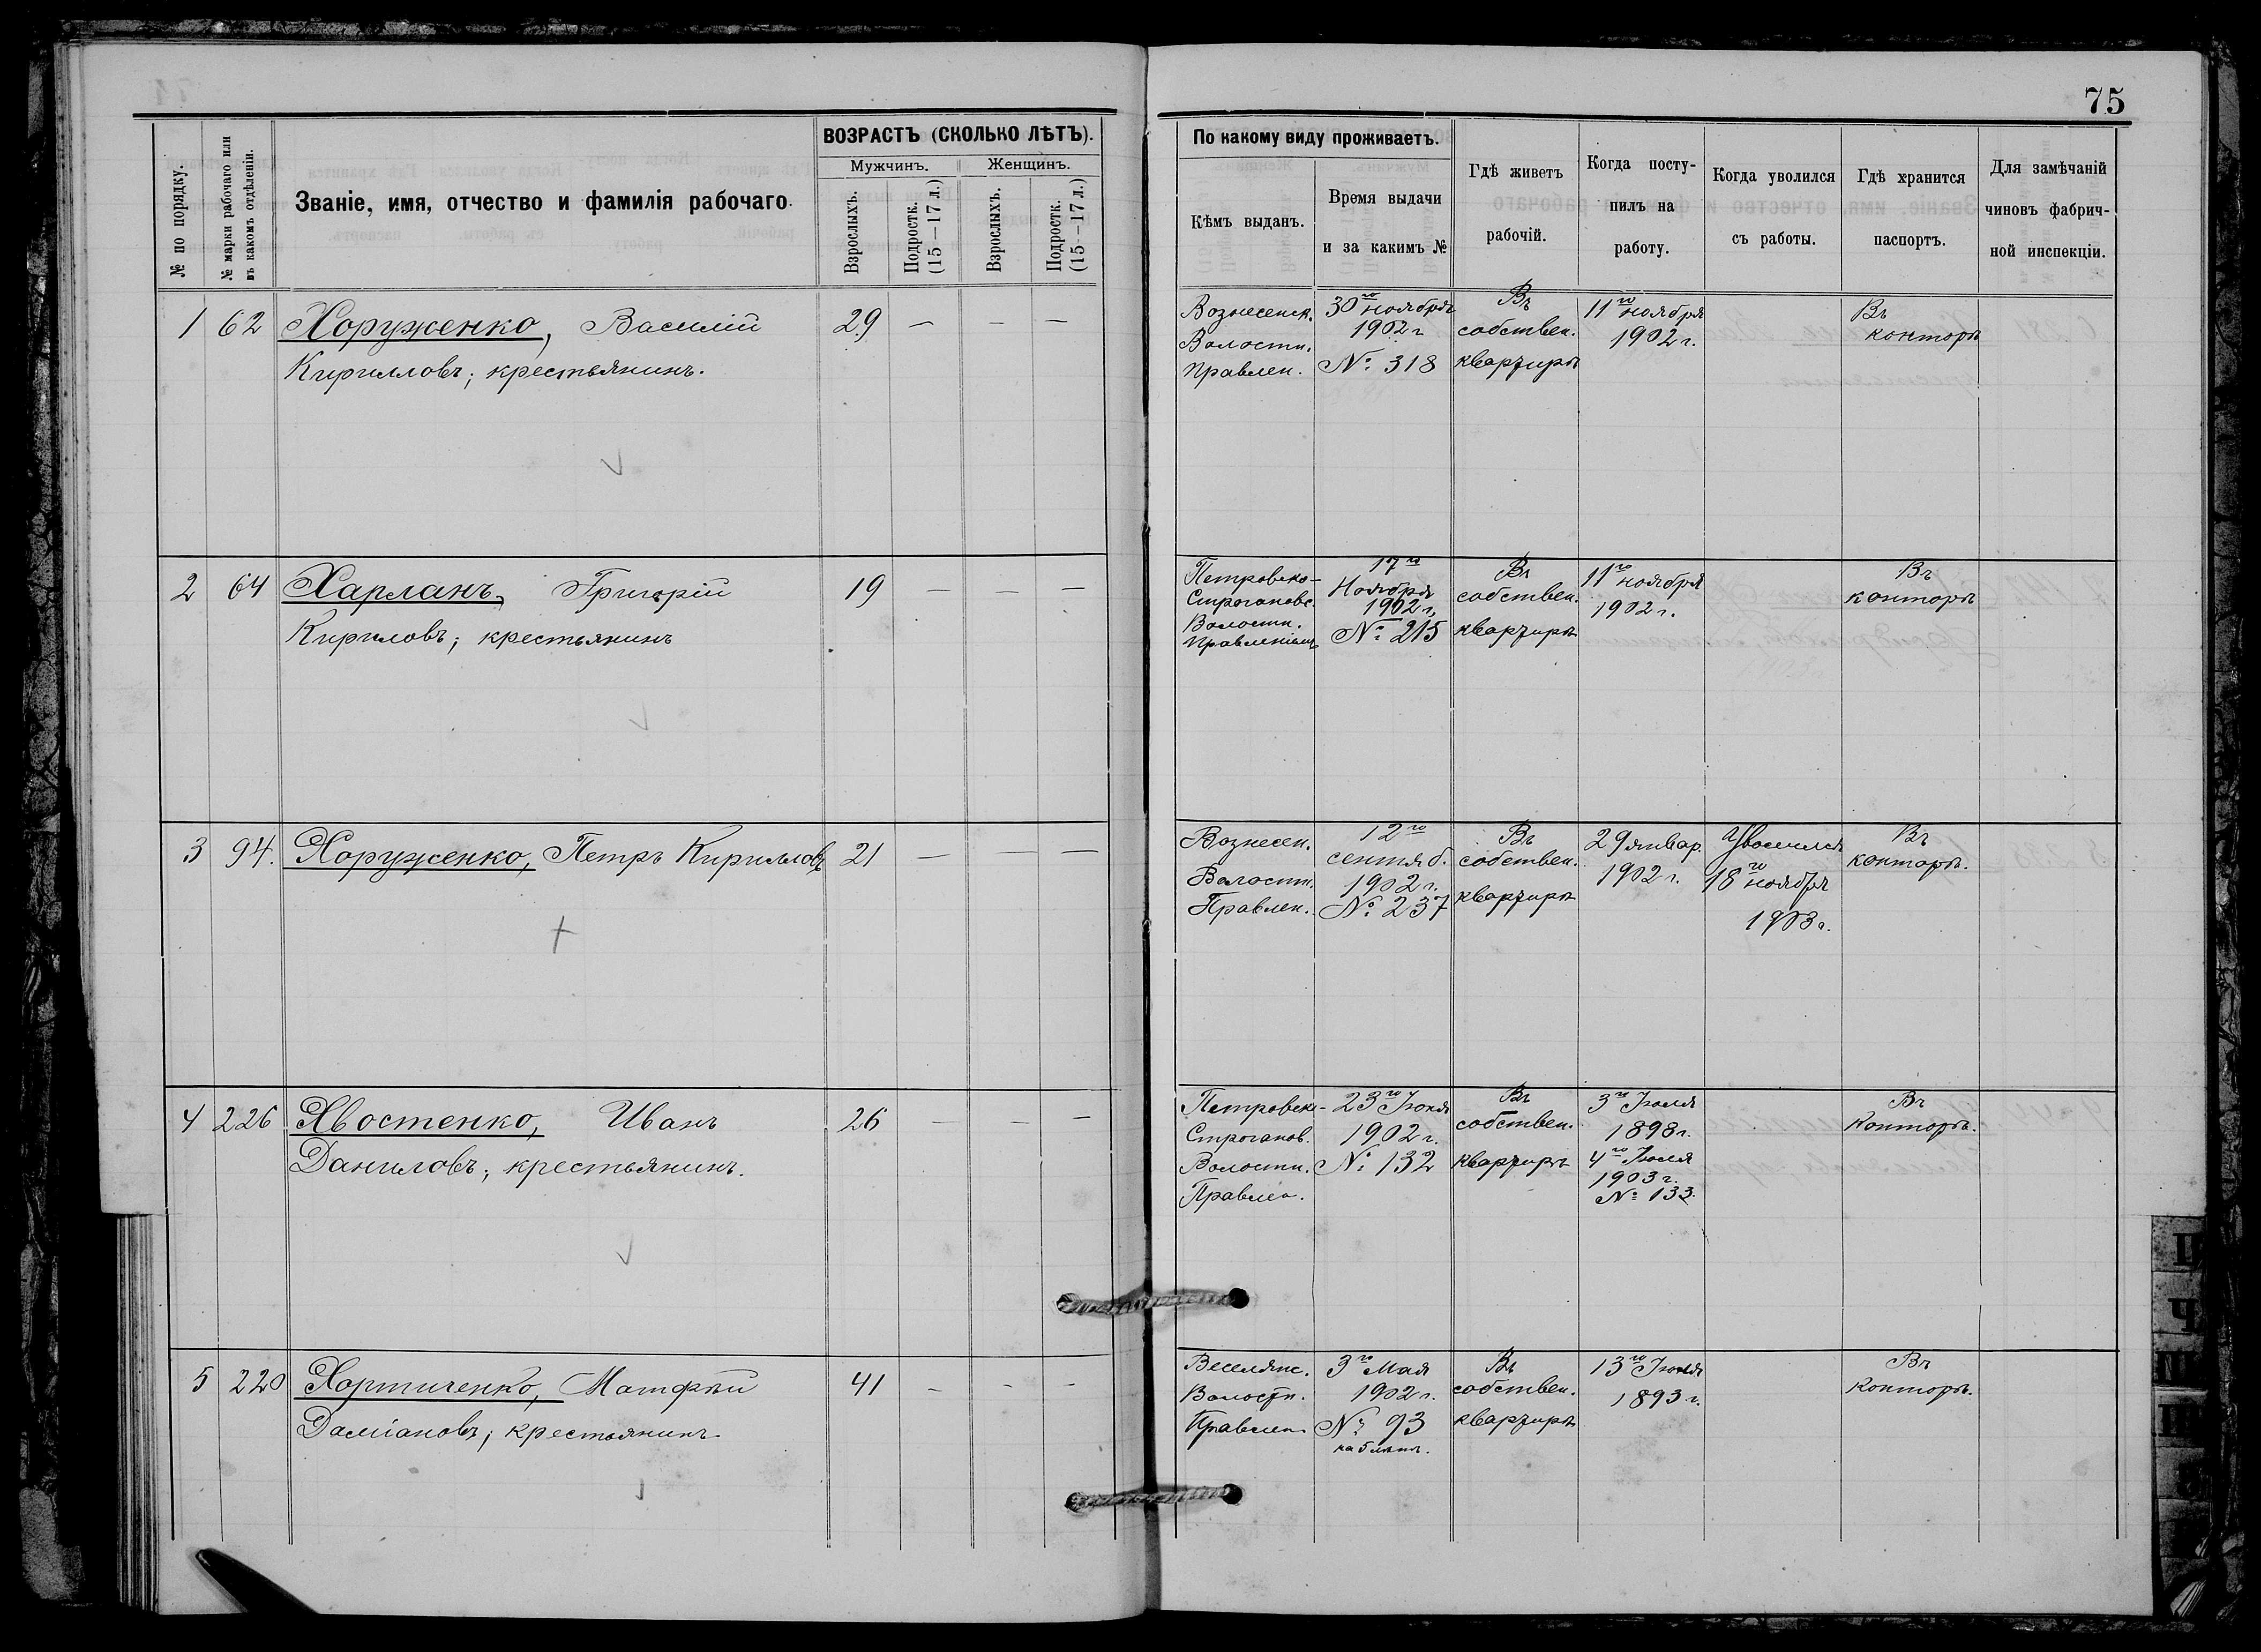 75
№ по порядку.
№ марки рабочаго или
въ какомъ отдѣленіи.
Званіе, имя, отчество и фамилія рабочаго.
ВОЗРАСТЪ (СКОЛЬКО ЛѢТЪ).
Мужчинъ.
Женщинъ.
Взрослыхъ.
Подростк.
(15—17 л.)
Взрослыхъ.
Подростк.
(15—17 л.)
По какому виду проживаетъ.
Кѣмъ выданъ.
Время выдачи
и за какимъ №
Гдѣ живетъ
рабочій.
Когда посту-
пилъ на
работу.
Когда уволился
съ работы.
Гдѣ хранится
паспортъ.
Для замѣчаній
чиновъ фабрич-
ной инспекціи.
1 62 Хоруженко, Василій
Кирилловъ; крестьянинъ.
29 — — —
Вознесенск.
Волостн.
Правлен.
30го ноября
1902 г
№ 318
Въ
собствен.
квартирѣ
11го ноября
1902 г.
Въ
конторѣ
2 64 Харланъ, Григорій
Кириловъ; крестьянинъ
19 — — —
Петровско-
Строгановс.
Волостн.
Правленіемъ
17го
Ноября
1902 г.
№ 215
Въ
собствен.
квартирѣ
11го ноября
1902 г.
Въ
конторѣ
3 94. Хоруженко, Петръ Кирилловъ
21 — — —
Вознесен.
Волостн.
Правлен.
12го
сентяб.
1902 г.
№ 237
Въ
собствен.
квартирѣ
29 январ.
1902 г.
Уволился
18го ноября
1903 г.
Въ
конторѣ.
4 226 Хвостенко, Иванъ
Даниловъ; крестьянинъ.
26 — — —
Петровско-
Строганов.
Волостн.
Правлен.
23го Іюня
1902 г.
№ 132
Въ
собствен.
квартирѣ
3го Іюля
1898 г.
4го Іюля
1903 г.
№ 133.
Въ
Конторѣ.
5 220 Хортиченко, Матфѣй
Даміановъ; крестьянинъ.
41 — — —
Веселянс.
Волостн.
Правлен.
3го Мая
1902 г.
№ 93
на 5 лѣтъ.
Въ
собствен.
квартирѣ
13го Іюня
1893 г.
Въ
Конторѣ.